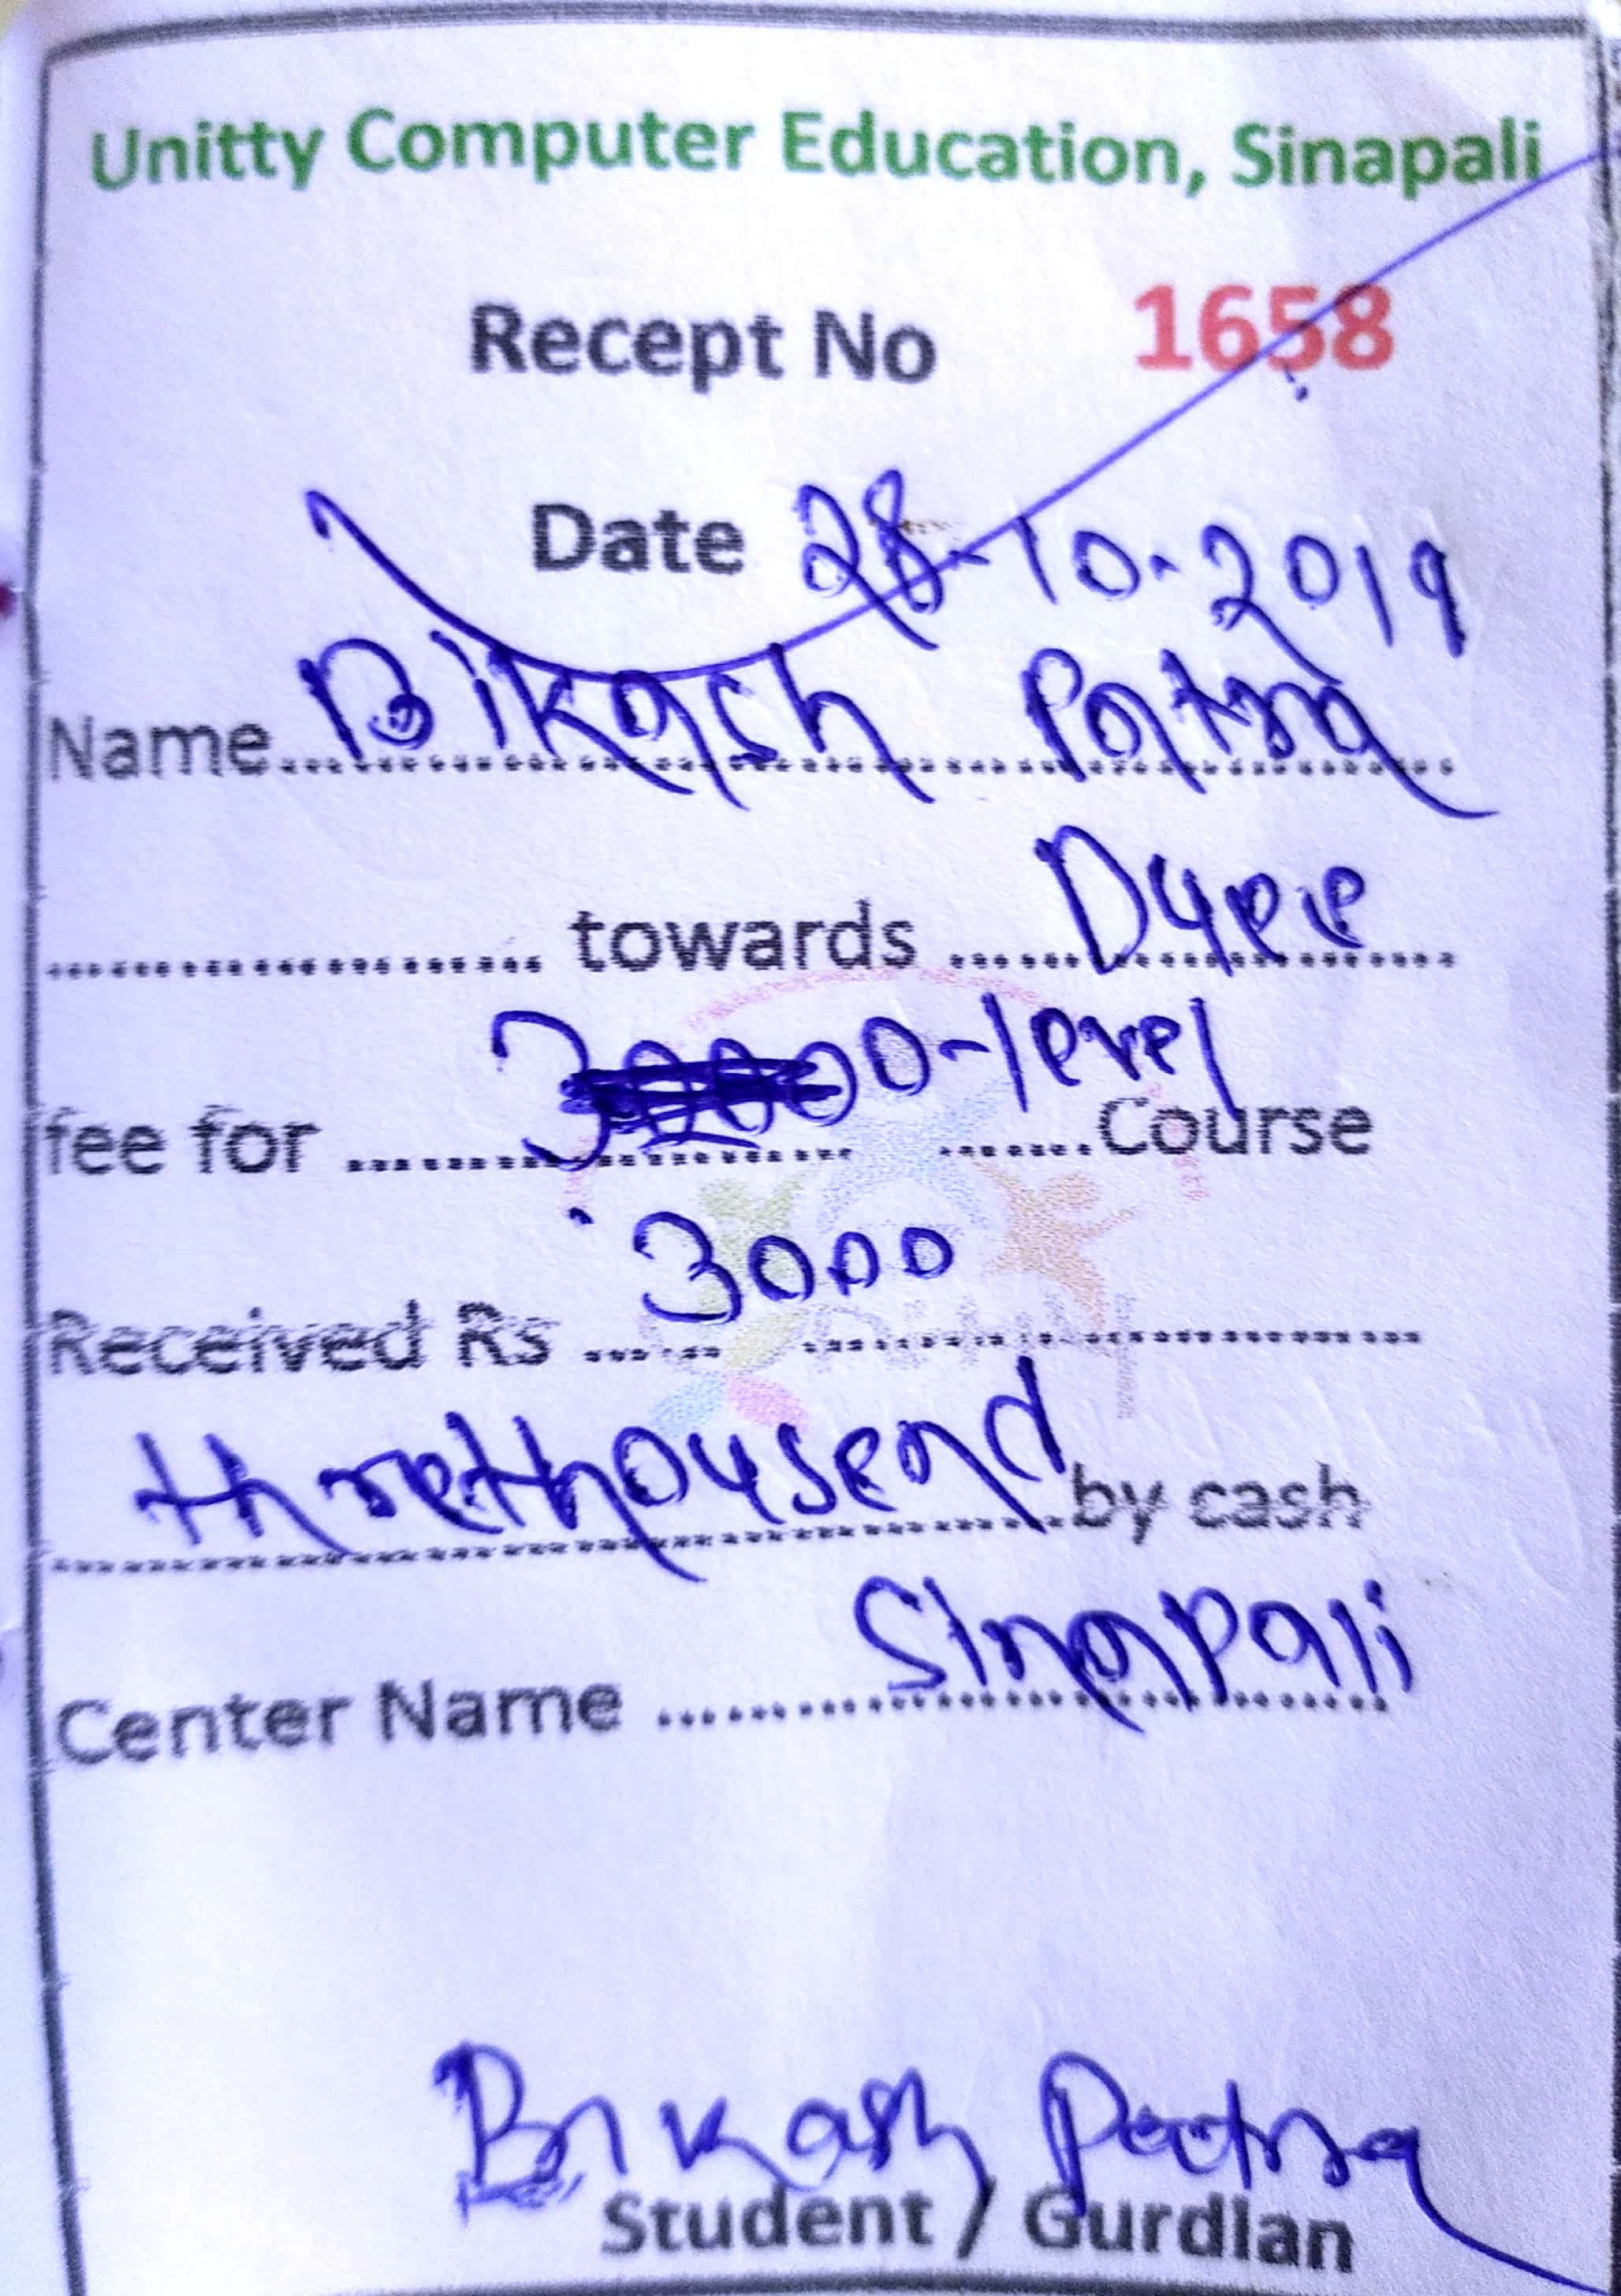 Unitty Computer Education, Sinapali
Recept No 1658
Date 28-10-2019
Name Bikash Patra
towards
fee for 3 O-level Course
Received Rs 3000
threthousend by cash
Center Name Sinapali
Bikash Patra
Student / Gurdian